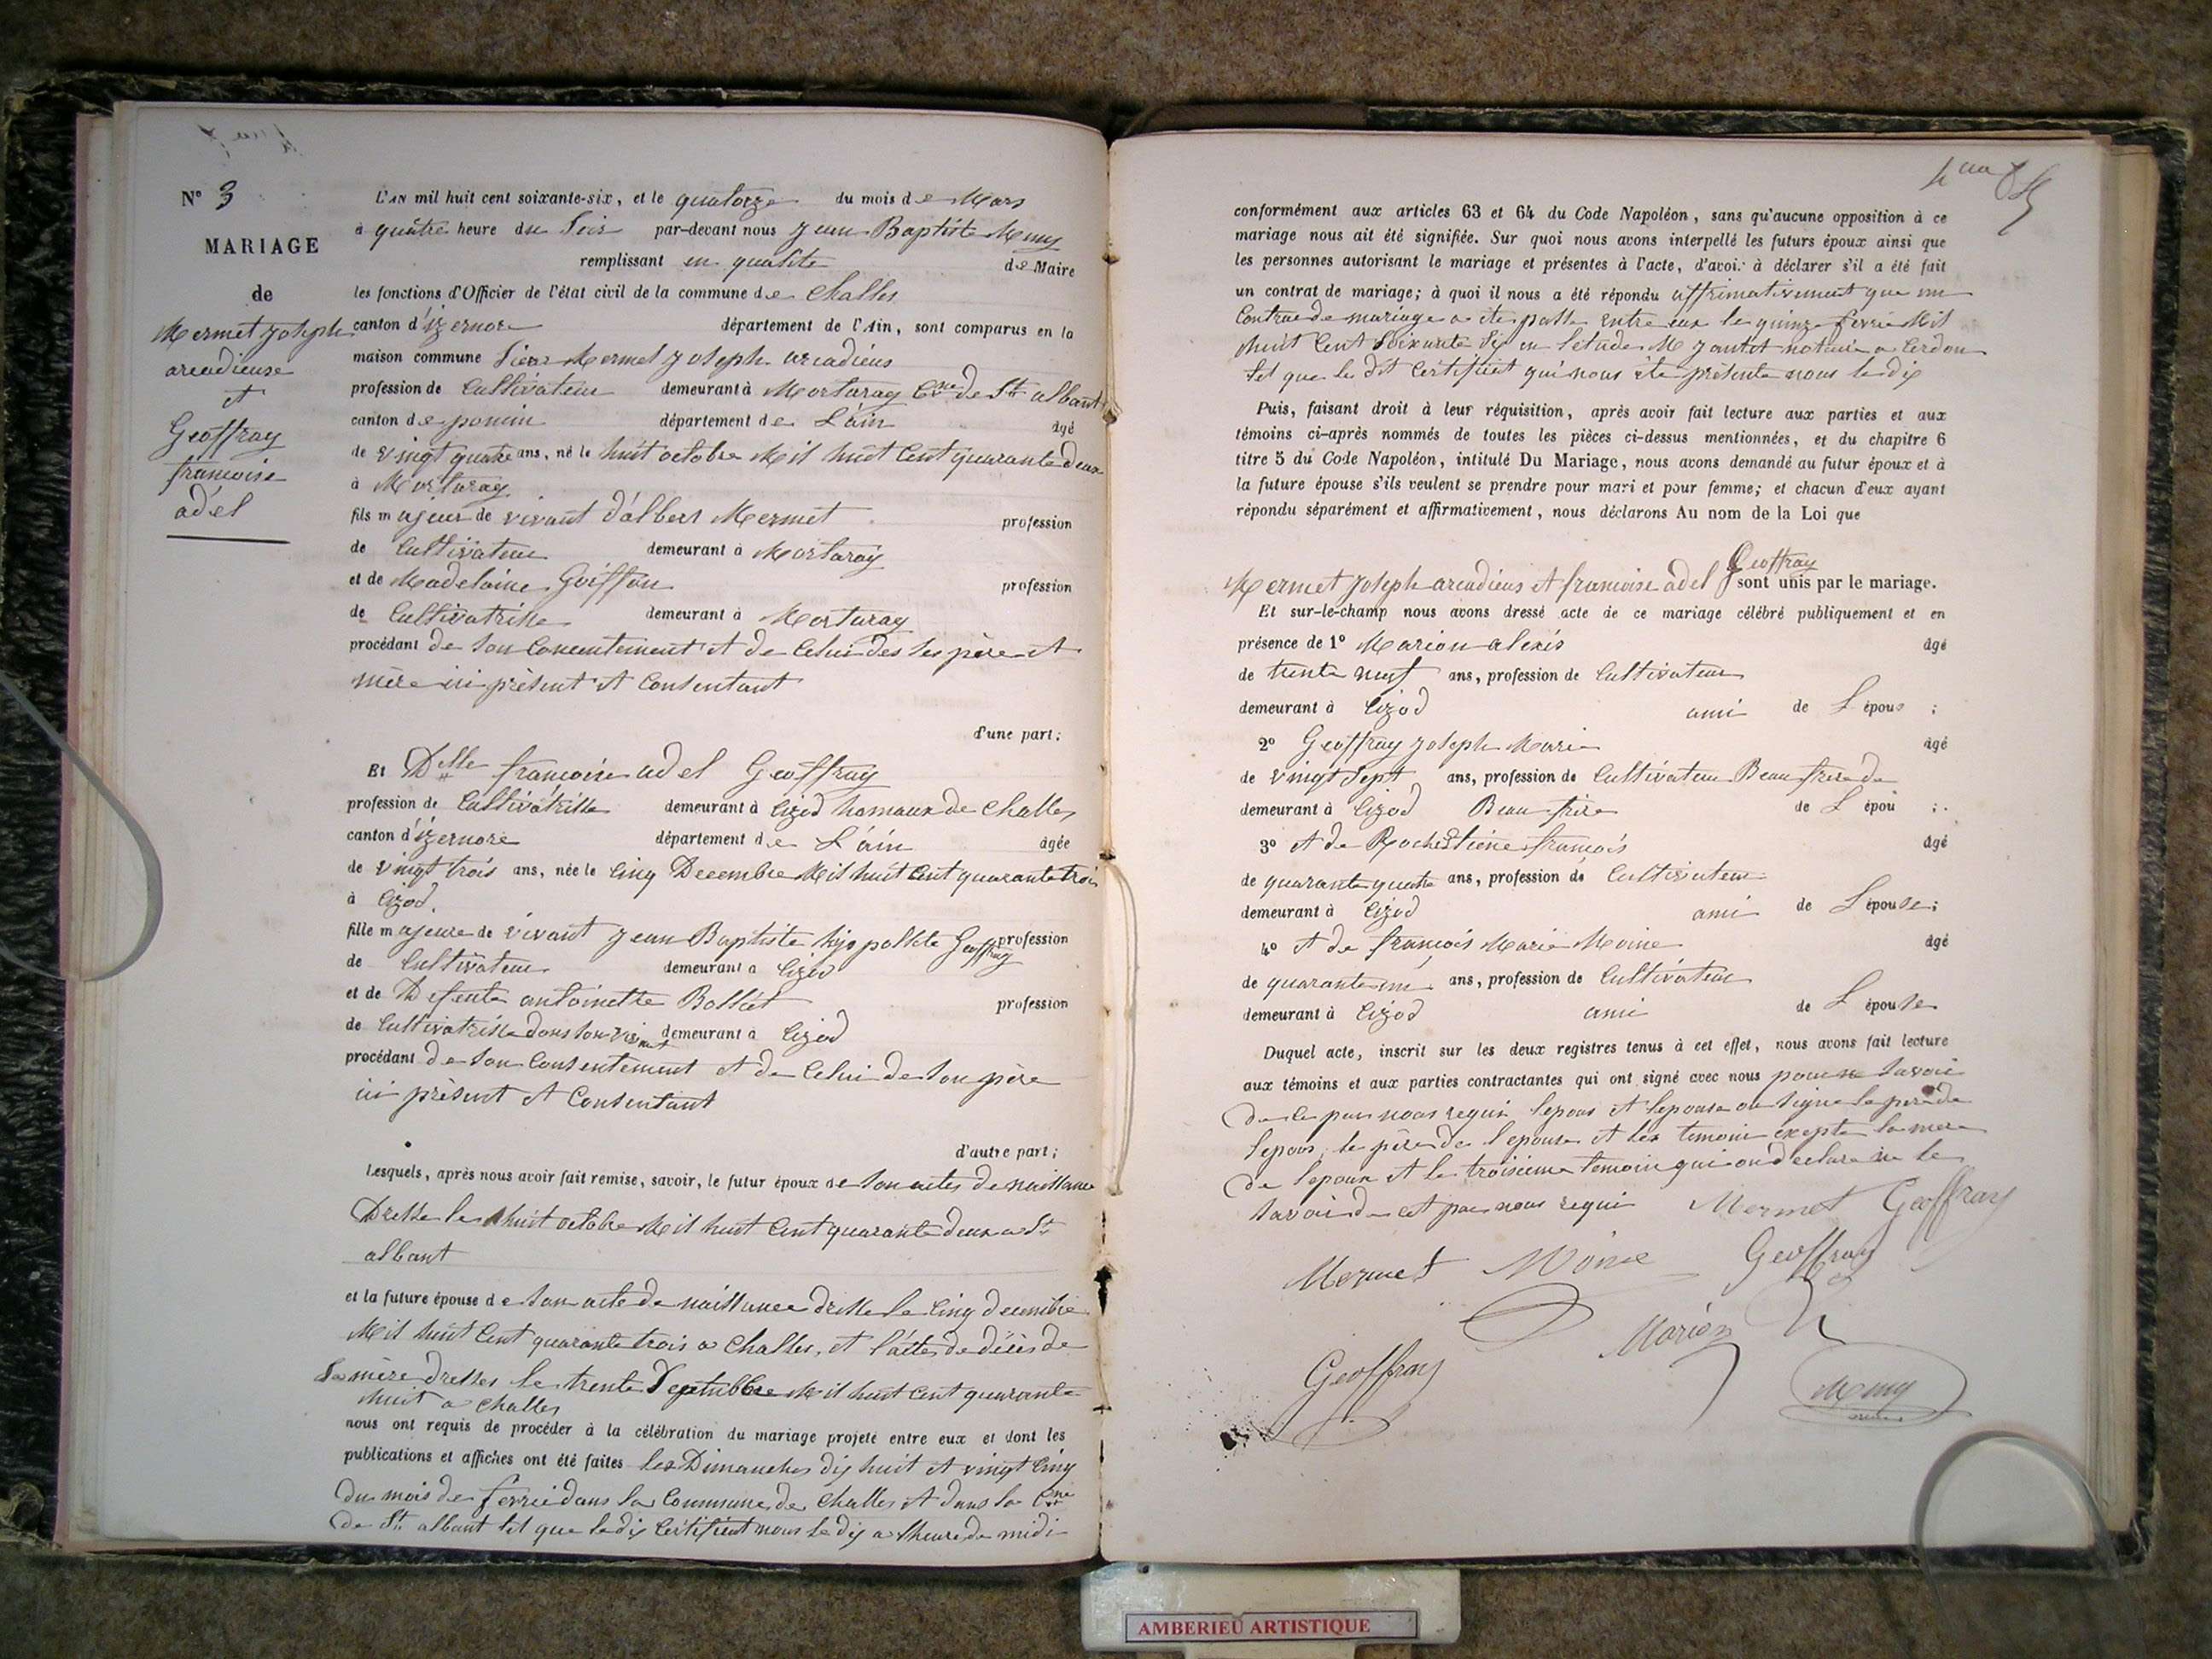 N° 3
MARIAGE
de
Mermet Joseph
arcadieuse
et
Geoffray
francoise
adel
L'AN mil huit cent soixante-six, et le quatorze du mois de Mars
à quatre heure du Soir par-devant nous Jean Baptiste Muny
remplissant en qualité de Maire
les fonctions d'Officier de l'état civil de la commune de Challes
canton d'izernore département de l'Ain, sont comparus en la
maison commune Sieur Mermet Joseph arcadieus
profession de Cultivateur demeurant à Mortaray Cne de St albant
canton de poncin département de L'ain âgé
de vingt quatre ans, né le huit octobre Mil huit Cent quarante deux
à Mortaray
fils majeur de vivant d'albert Mermet profession
de Cultivateur demeurant à Mortaray
et de Madelaine Goiffon profession
de Cultivatrisse demeurant à Mortaray
procédant de son Concentement et de Celui des ses père et
mère ici présent et Consentant
d'une part;
Et Delle francoise adel Geoffray
profession de Cultivatrisse demeurant à Cizod hamaux de Challes
canton d'izernore département de L'ain âgée
de vingt trois ans, née le Cinq Decembre Mil huit Cent quarante trois
à Cizod
fille majeure de vivant Jean Baptiste hyppolite Geoffray profession
de Cultivateur demeurant à Cizod
et de Defunte antoinette Bolliet profession
de Cultivatrisse dans son vivant demeurant à Cizod
procédant de son Consentement et de Celui de son père
ici présent et Consentant
d'autre part;
Lesquels, après nous avoir fait remise, savoir, le futur époux de son actes de naissance
Dresse le huit octobre Mil huit Cent quarante deux a St
albant
et la future épouse de son acte de naissance dresse le Cinq decembre
Mil huit Cent quarante trois a Challes, et l'actes de décès de
Sa mère dresses le trente Septembre Mil huit Cent quarante
huit a Challes
nous ont requis de procéder à la célébration du mariage projeté entre eux et dont les
publications et affiches ont été faites les Dimanches dix huit et vingt Cinq
du mois de fevrie dans la Commune de Challes et dans la Cne
de St albant tel que le dis Certificat nous le dis a lheure de midi
conformément aux articles 63 et 64 du Code Napoléon, sans qu'aucune opposition à ce
mariage nous ait été signifiée. Sur quoi nous avons interpellé les futurs époux ainsi que
les personnes autorisant le mariage et présentes à l'acte, d'avoir à déclarer s'il a été fait
un contrat de mariage; à quoi il nous a été répondu affirmativement que un
Contrac de mariage a ete passe entre eux le quinze fevrie Mil
huit Cent Soixante Six en l'etude M Jantet notaire a Cerdon
tel que le dit Certificat qui nous ete présente nous le dis
Puis, faisant droit à leur réquisition, après avoir fait lecture aux parties et aux
témoins ci-après nommés de toutes les pièces ci-dessus mentionnées, et du chapitre 6
titre 5 du Code Napoléon, intitulé Du Mariage, nous avons demandé au futur époux et à
la future épouse s'ils veulent se prendre pour mari et pour femme; et chacun d'eux ayant
répondu séparément et affirmativement, nous déclarons Au nom de la Loi que
Mermet Joseph arcadieus et francoise adel Geoffray sont unis par le mariage.
Et sur-le-champ nous avons dressé acte de ce mariage célébré publiquement et en
présence de 1° Marion alexis âgé
de trente neuf ans, profession de Cultivateur
demeurant à Cizod ami de L épous ;
2° Geoffray Joseph Marie âgé
de vingt Sept ans, profession de Cultivateur Beau frere de
demeurant à Cizod Beau frère de L épou ;
3° et de Roche Etiene francois âgé
de quarante quatre ans, profession de Cultivateur
demeurant à Cizod ami de L épouse;
4° et de francois Marie Moine âgé
de quarante un ans, profession de Cultivateur
demeurant à Cizod ami de L épouse
Duquel acte, inscrit sur les deux registres tenus à cet effet, nous avons fait lecture
aux témoins et aux parties contractantes qui ont signé avec nous pour Savoir
de ce par nous requi lepous et lepouse on signe le père de
lepous, le père de l'epouse et les temoin excepte la mere
de lepoux et le troisieme temoin qui on declare ne le
savoir de cet par nous requi Mermet Geoffray
Mermet Moine Geoffray
Marion
Geoffray Muny
AMBERIEU ARTISTIQUE